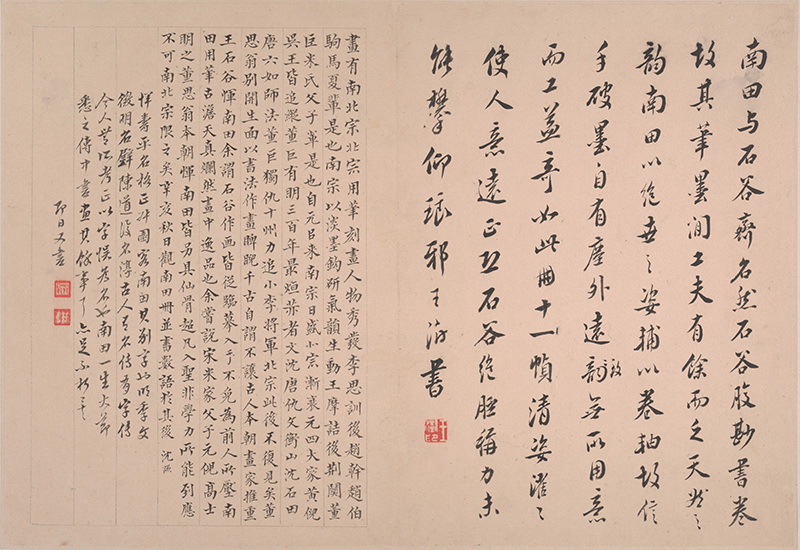 南田与石谷齊名然石谷腹尠書卷
故其筆墨間工夫有餘而乏天然之
韵南田以絶世之姿補以卷軸故信
手破墨自有塵外遠致無所用意
而工益奇如此冊十一幀清姿濯濯
使人意遠正恐石谷絶脰稱力未
能攀仰瑯邪王澍書
畫有南北宗北宗用筆刻畫人物秀發李思訓後趙幹趙伯
駒馬夏輩是也南宗以淡墨鈎斫氣韻生動王摩詰後荆關董
巨米氏父子輩是也自元呂来南宗日盛小宗漸衰元四大家黄倪
吳王皆追蹤董巨有明三百年最烜赫者文沈唐仇文衡山沈石田
唐六如師法董巨獨仇十州力追小李將軍北宗此後不復見矣董
思翁别開生面以書法作畫睥睨千古自謂不讓古人本朝畫家推重
王石谷惲南田余謂石谷作画皆從臨摹入手不免為前人所壓南
田用筆古澹天真爛然畫中逸品也余嘗說宋米家父子元倪高士
明之董思翁本朝惲南田皆另具仙骨超凡入聖非學力所能列應
不可南北宗限之矣辛亥秋日觀南田冊並書數語於其後 沈
惲壽平名格正叔國
徵明名壁陳道復名淳古人有名傳有字傳
令人
即日又書